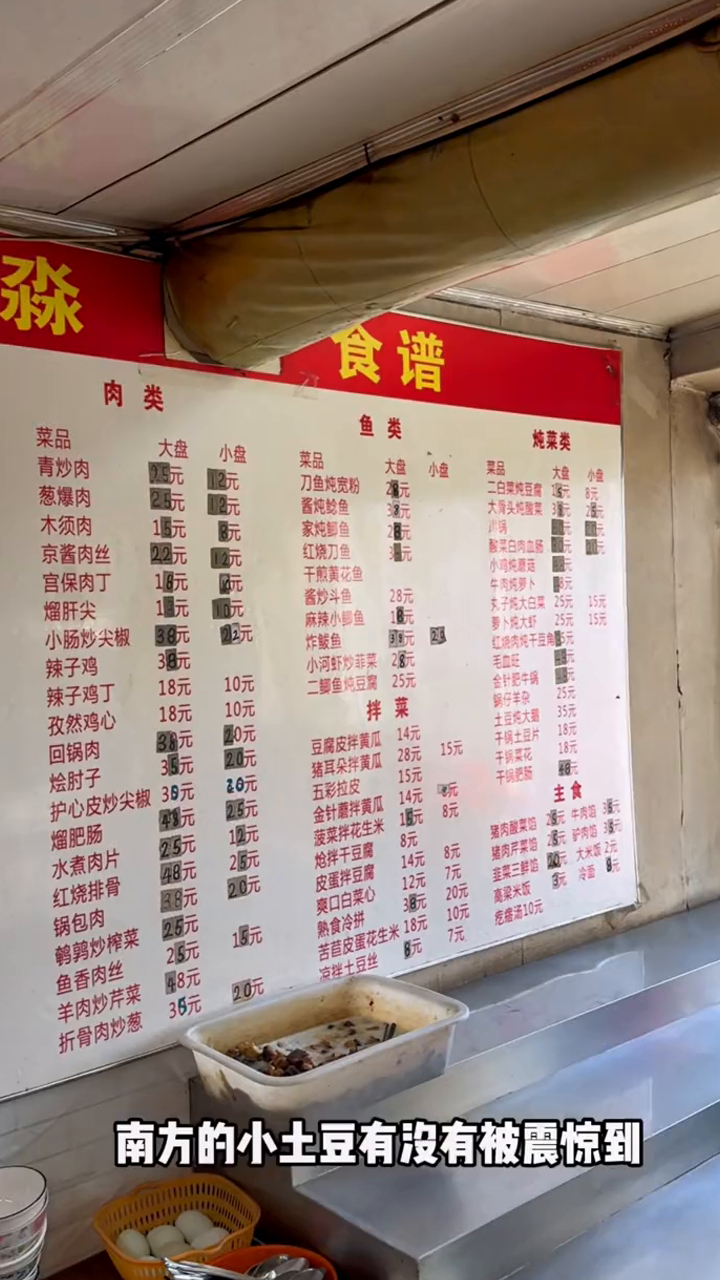 淼 食谱
肉类
菜品 大盘 小盘
青炒肉 25元 12元
葱爆肉 25元 12元
木须肉 15元 8元
京酱肉丝 22元 12元
宫保肉丁
熘肝尖
小肠炒尖椒 38元 22元
辣子鸡 38元
辣子鸡丁 18元 10元
孜然鸡心 18元 10元
回锅肉 38元 20元
烩肘子 35元 20元
护心皮炒尖椒
熘肥肠 25元
水煮肉片 25元 12元
红烧排骨 48元 25元
锅包肉 38元 20元
鹌鹑炒榨菜 25元
鱼香肉丝 25元 15元
羊肉炒芹菜 48元
折骨肉炒葱 20元
鱼类
菜品 大盘 小盘
刀鱼炖宽粉
酱炖鲶鱼
家炖鲫鱼
红烧刀鱼
干煎黄花鱼
酱炒斗鱼 28元
麻辣小鲫鱼 18元
炸鲅鱼
小河虾炒韭菜 28元
二鲫鱼炖豆腐 25元
拌菜
豆腐皮拌黄瓜 14元
猪耳朵拌黄瓜 28元 15元
五彩拉皮 15元
金针蘑拌黄瓜 14元
菠菜拌花生米 8元
炝拌干豆腐 8元
皮蛋拌豆腐 14元 8元
爽口白菜心 12元 7元
熟食冷拼 38元 20元
苦苣皮蛋花生米 18元 10元
凉拌土豆丝 8元 7元
炖菜类
菜品 大盘 小盘
二白菜炖豆腐 8元
大骨头炖酸菜
川锅
酸菜白肉血肠
小鸡炖蘑菇
牛肉炖萝卜
丸子炖大白菜 25元 15元
萝卜炖大虾 25元 15元
红烧肉炖干豆角
毛血旺
金针肥牛锅
锅仔羊杂 25元
土豆炖大鹅 35元
干锅土豆片 18元
干锅菜花 18元
干锅肥肠
主食
猪肉酸菜馅 牛肉馅
猪肉芹菜馅 驴肉馅
韭菜三鲜馅 大米饭 2元
高粱米饭 3元 冷面
疙瘩汤10元
南方的小土豆有没有被震惊到